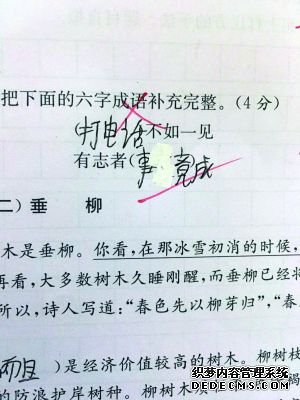 把下面的六字成语补充完整。(4分)
(打电话不如一见
有志者(事竟成
二）垂 柳
木是垂柳。你看，在那冰雪初消的时候，
再看，大多数树木久睡刚醒，而垂柳已经将
所以，诗人写道：“春色先以柳芽归”，“春
而且 ）是经济价值较高的树木。柳树枝
的防浪护岸树种。柳树木
织梦内容管理系统
DEDECMS.COM